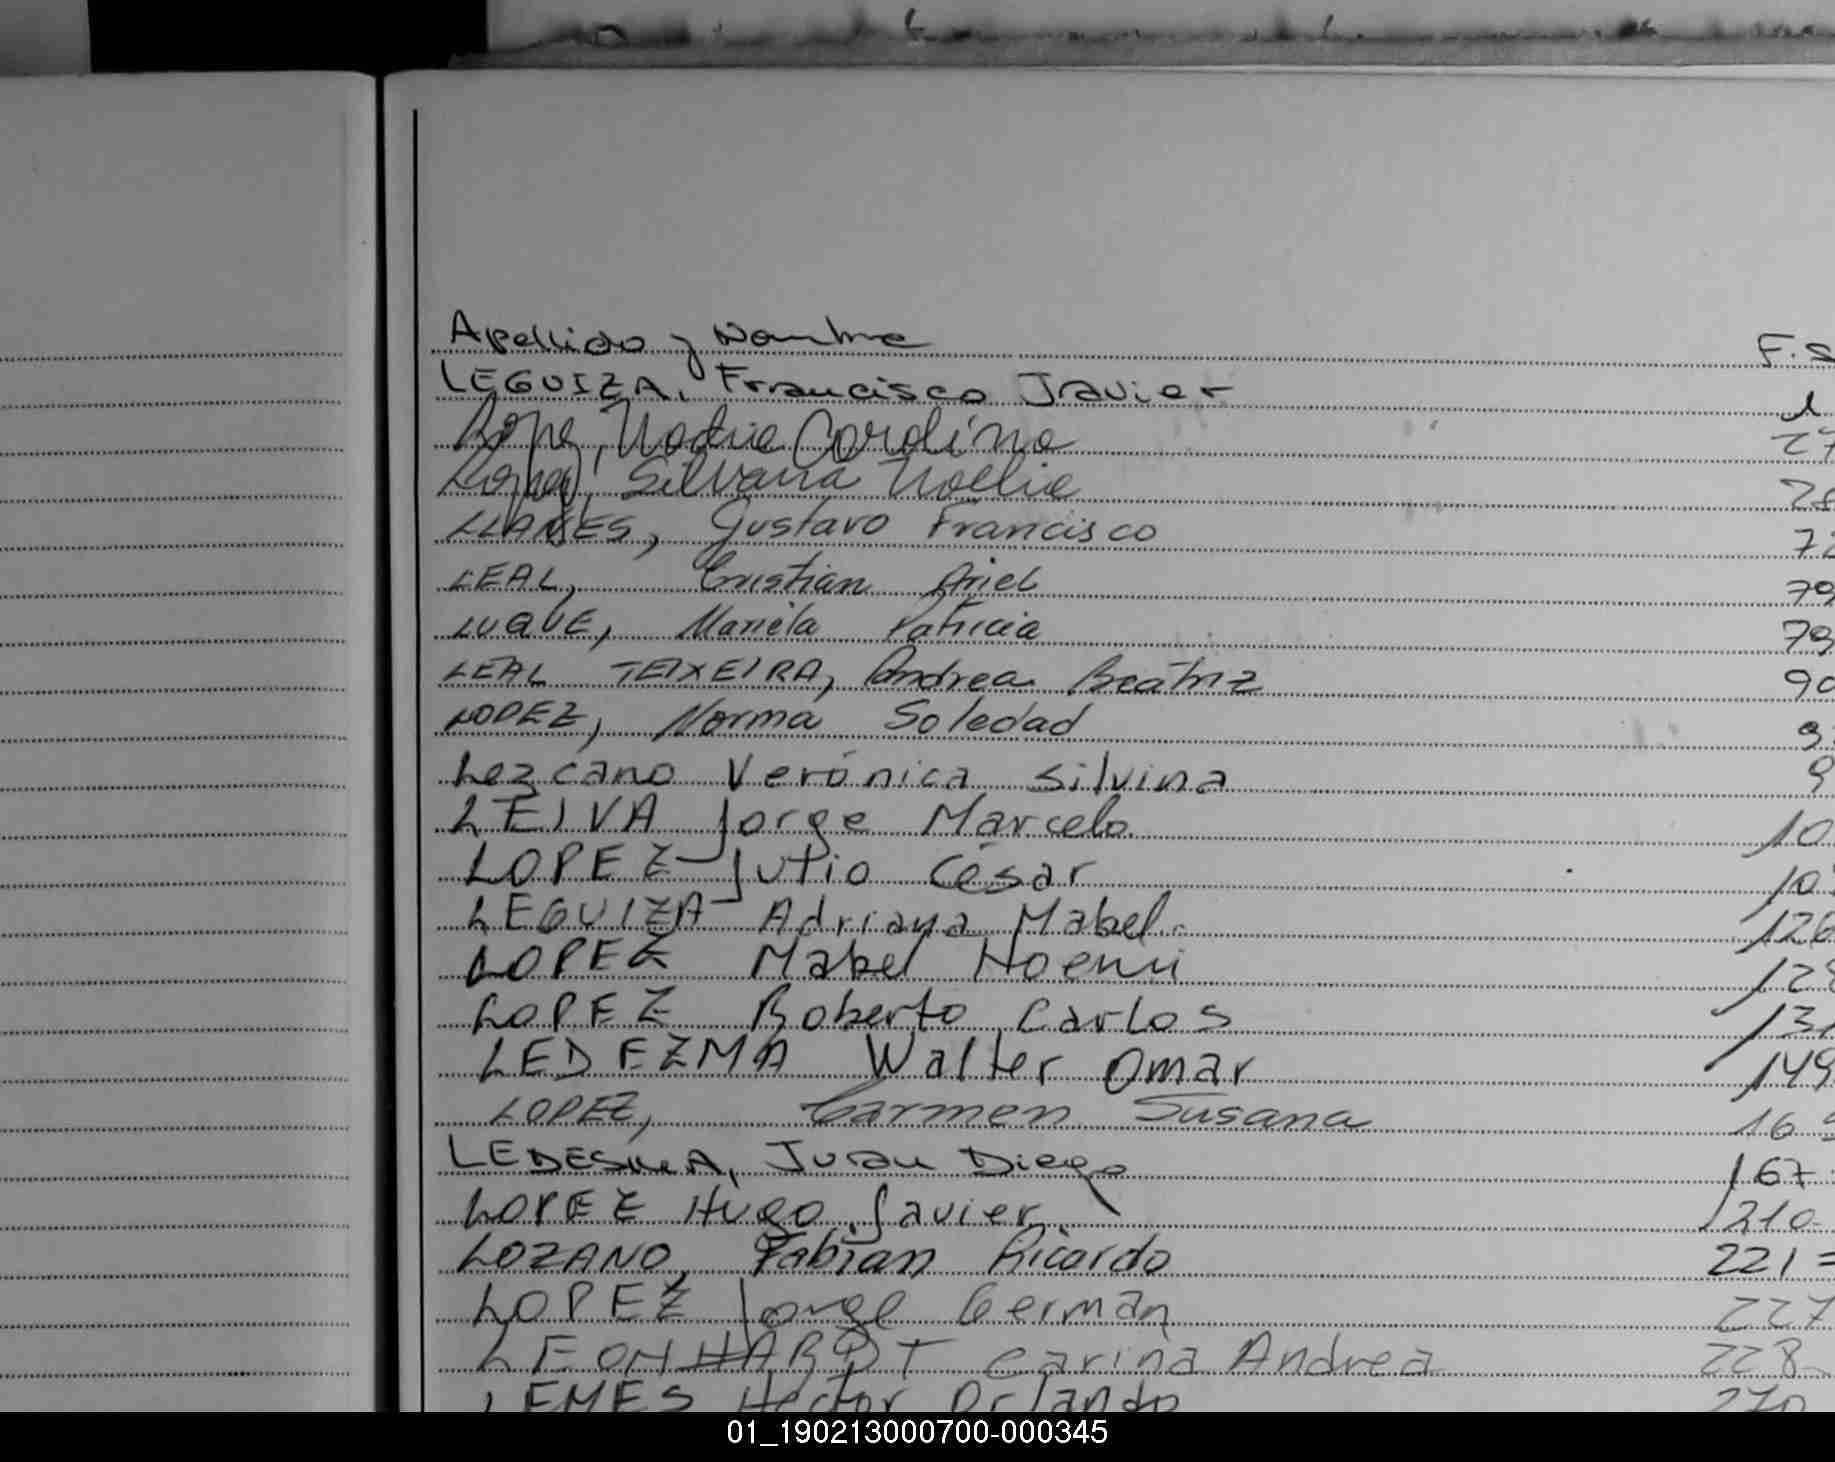 Apellido y Nombre F.S
LEGUIZA, Francisco Javier 1
Lopez, Nadia Carolina 27
Lopez, Silvana Noelia 28
LLANES, Gustavo Francisco 72
LEAL, Cristian Ariel 79
LUQUE, Mariela Patricia 79
LEAL TEIXEIRA, Andrea Beatriz 90
LOPEZ, Norma Soledad 9
Lezcano Verónica Silvina 9
LEIVA Jorge Marcelo 10
LOPEZ Julio César 10
LEGUIZA Adriana Mabel 126
LOPEZ Mabel Noemi 128
LOPEZ Roberto Carlos 131
LEDEZMA Walter Omar 149
LOPEZ, Carmen Susana 16
LEDESMA, Juan Diego 167
LOPEZ Hugo Javier 210
LOZANO, Fabian Ricardo 221
LOPEZ Jorge German 227
LEONHARDT Carina Andrea 228
LEMES Hector Orlando 270
01_190213000700-000345